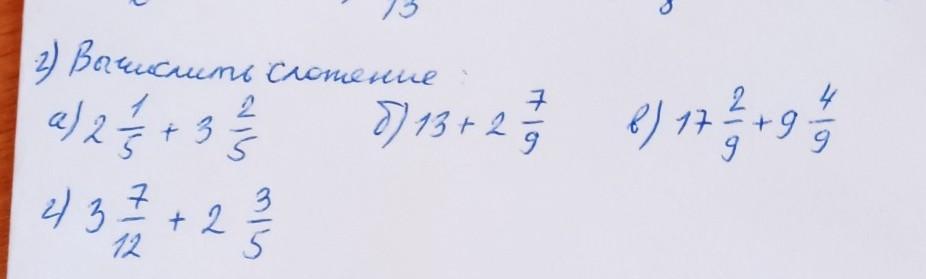 13 8
2) Вычислить сложение:
а) 2 1/5 + 3 2/5 б) 13 + 2 7/9 в) 17 2/9 + 9 4/9
г) 3 7/12 + 2 3/5